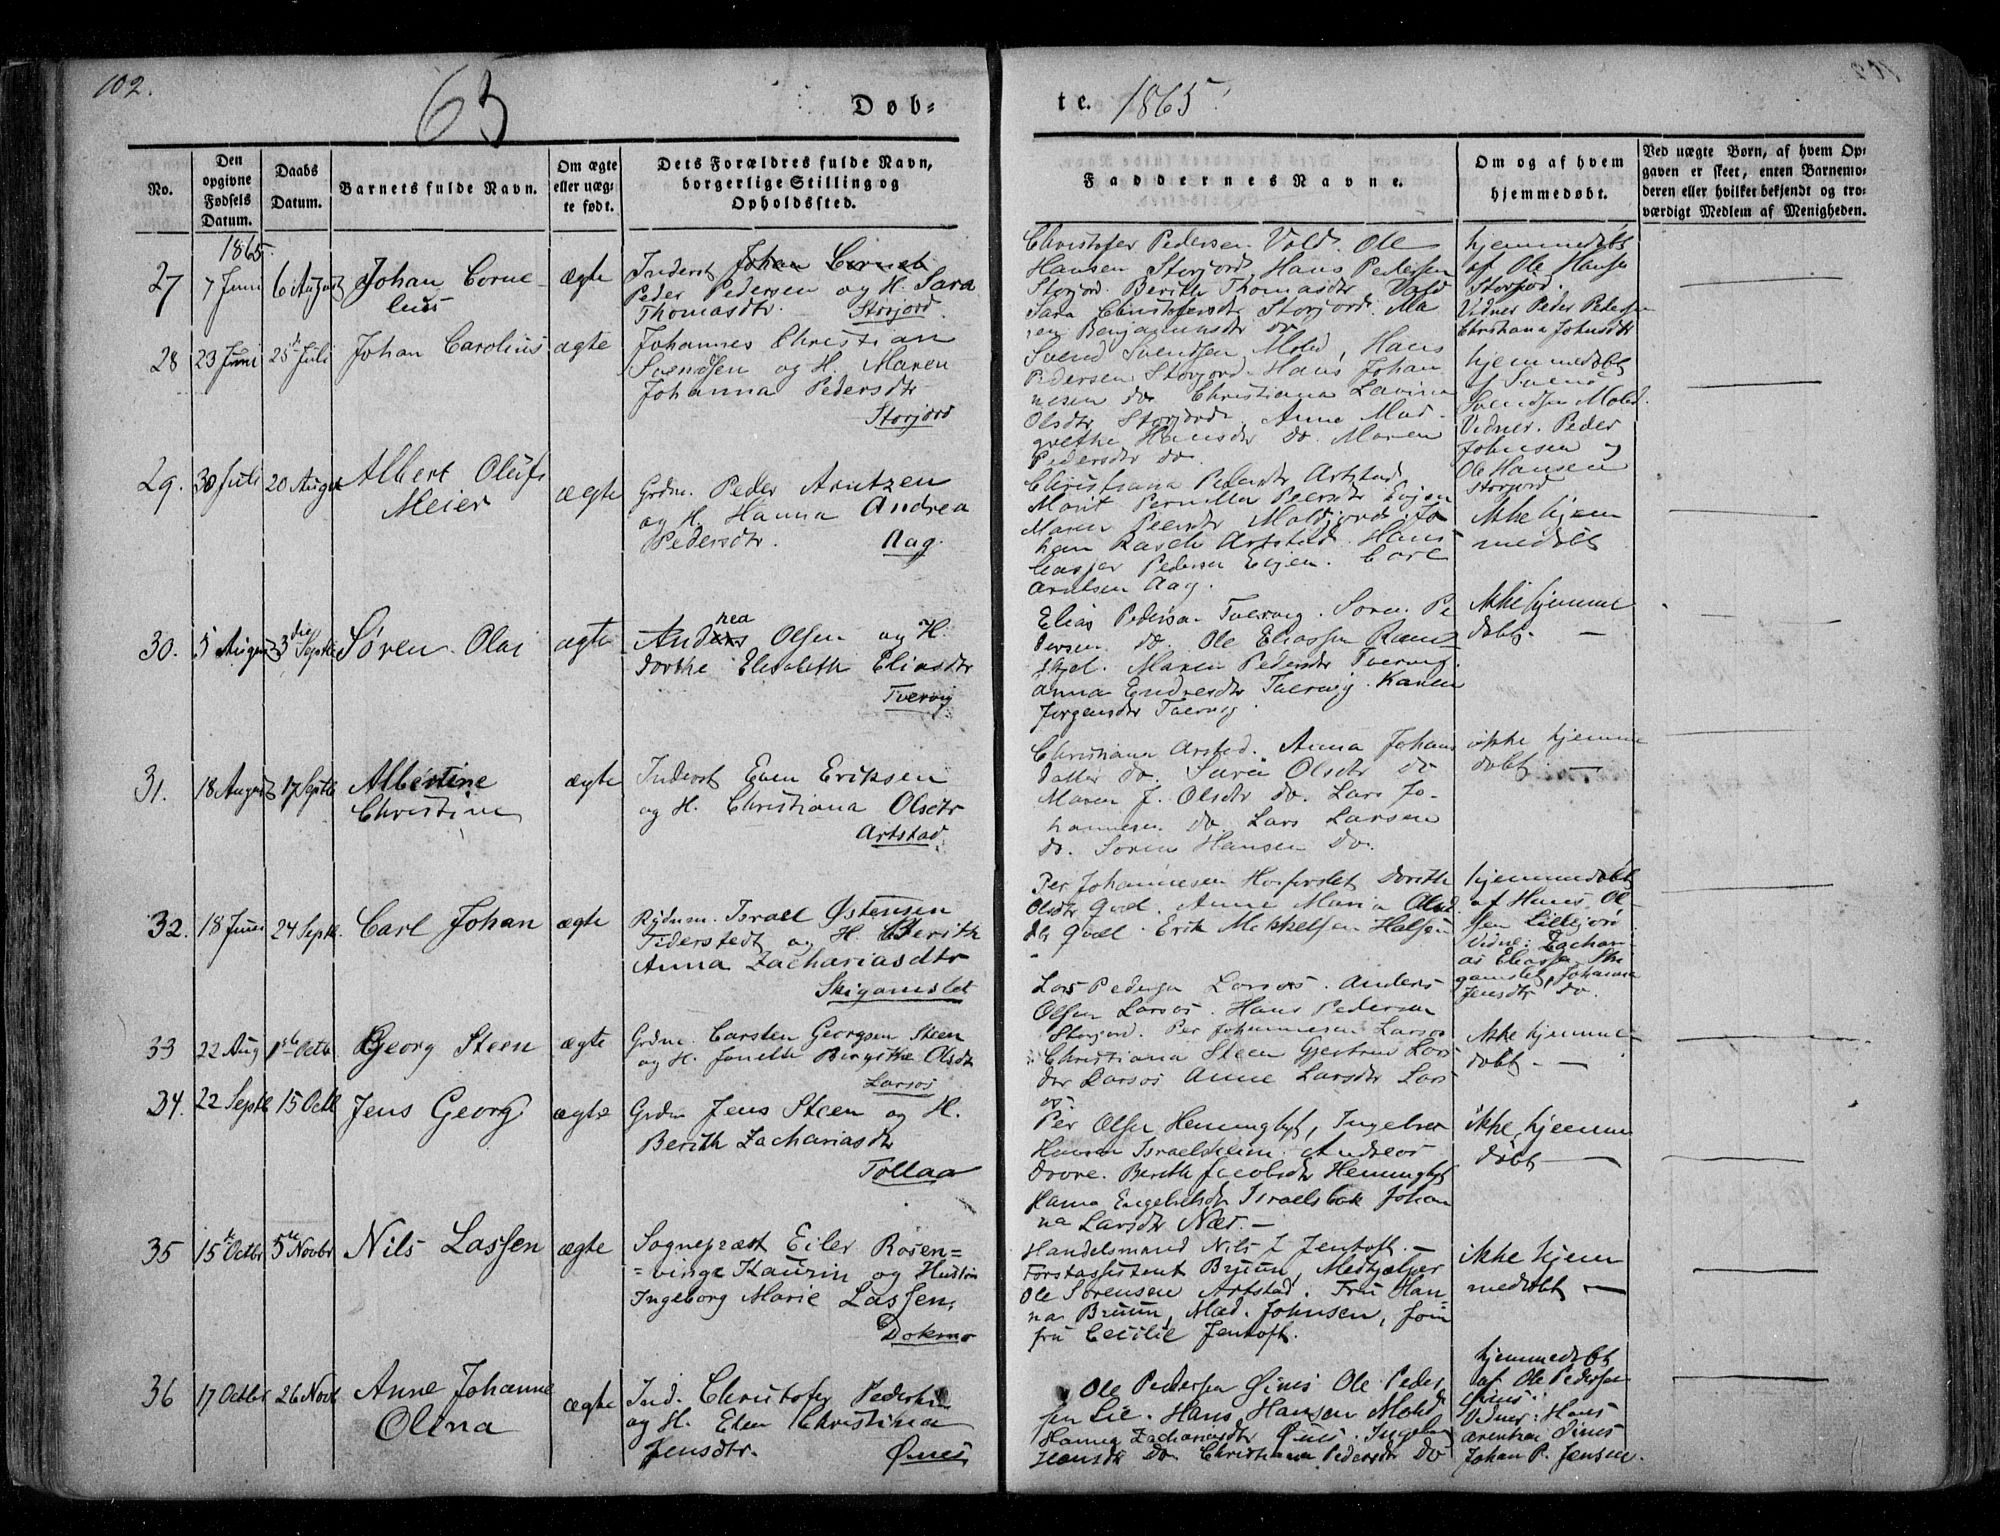 102.
65
Døb-
te. 1865.
No.
Den opgivne Fødsels Datum.
Daabs Datum.
Barnets fulde Navn.
Om ægte eller uæg-te født.
Dets Forældres fulde Navn, borgerlige Stilling og Opholdssted.
Faddernes Navne.
Om og af hvem hjemmedøbt.
Ved uægte Børn, af hvem Op-
gaven er skeet, enten Barnemo-
deren eller hvilket bekjendt og tro-
værdigt Medlem af Menigheden.
1865.
27 7 Juni 6 August Johan Corne-
lius
ægte
Inderst Johan Cornel
Peder Pedersen og H. Sara
Thomasdtr. Storjord.
Christofer Pedersen Vold. Ole
Hansen Storjord. Hans Pedersen
Storjord. Berith Thomasdtr Vold
Sara Christofersdtr Storjord. Ma
ren Benjaminsdtr do
hjemmedøbt
af Ole Hansen
Storjord.
Vidner Peder Pedersen
Christiana Johnsdtr
28 23 Juni 25 Juli Johan Carolius ægte
Johannes Christian
Svendsen og H. Maren
Johanna Pedersdtr
Storjord
Svend Svendsen Mold, Hans
Pedersen Storjord. Hans Johan
nesen do Christiana Lavina
Olsdtr Storjord. Anne Mar-
grethe Hansdtr do. Maren
Pedersdtr do.
hjemmedøbt
af Svend
Svendsen Mold.
Vidner. Peder
Johnsen og
Ole Hansen
Storjord
29. 30 Juli 20 August Albert Oluf
Meier
ægte
Grdm. Peder Arntzen
og H. Hanna Andrea
Pedersdtr. Aag.
Christiana Pedersdtr Artstad
Marit Pernilla Peersdtr Evjen
Maren Peersdtr Moldjord. Jo
han Rasch Artstad. Hans
Casper Pedersen Evjen. Carl
Arntsen Aag.
Ikke hjem
medøbt
30. 5 August 3die Septbr Søren Olai ægte
Anders rea Olsen og H.
Dorthe Elisabeth Eliasdtr
Tvervig
Elias Pedersen Tvervig. Soren Pe
dersen do. Ole Eliassen Ram
skjel. Maren Pedersdtr Tvervig.
Anna Endresdtr Tvervig. Karen
Jørgensdtr Tvervig.
Ikke hjemme
døbt. —
31. 18 August 17 Septbr Albertine
Christine
ægte
Inderst Even Eriksen
og H. Christiana Olsdtr
Artstad.
Christiana Arstad. Anna Johans
datter do. Sara Olsdtr do
Maren J. Olsdtr do. Lars Jo-
hannesen do Lars Larsen
do. Soren Hansen do.
ikke hjemme
døbt. —
32. 18 Juni 24 Septbr. Carl Johan ægte
Rydnm. Israel Østensen
Fiderstedt og H. Berith
Anna Zachariasdtr
Skigamslet
Per Johannesen Dorith
Olsdtr Qvæl. Anne Maria Olsd
dtr Qvæl. Erik Mikkelsen
hjemmedøbt
af Hans Ol-
sen Lillejord
Vidne: Zachari-
as Eliassen Ski
gamslet, Johanna
Jensdtr do.
33 22 Aug 1ste Octbr Georg Steen ægte
Grdm. Carsten Georgsen Steen
og H. Jonette Birgithe Olsdtr
Larsos
Lars Pedersen Larsos. Anders
Olsen Larsos. Hans Pedersen
Storjord. Per Johannesen Larsos
Christiana Steen Gjertrud Lars
dtr Larsos Anne Larsdtr Lars
os.
Ikke hjemme-
døbt. —
34. 22 Septbr 15 Octbr Jens Georg ægte
Grdm Jens Steen og H.
Berith Zachariasdtr
Tollaa
Per Olsen Hemminglyt, Ingebret
Hansen Israelsheim. Andreas
Dovre. Berith Jacobsdtr Hemminglyt
Hanna Engebretsdtr Israelsbak Johan
na Larsdtr Næs. —
ikke hjemme
døbt —
35 15de Octbr 5te Novbr Nils Lassen ægte
Sognepræst Eiler Rosen-
=vinge Kaurin og Hustru
Ingeborg Marie Lassen,
Dokmo
Handelsmand Nils J. Jentoft. —
Forstassistent Bruun, Medhjælper
Ole Sørensen Artstad. Fru Han-
na Bruun, Mad. Johnsen, Jom
fru Cecilie Jentoft.
ikke hjem
medøbt —
36 17 Octbr 26 Novb Anne Johanne
Olina
ægte
Ind. Christofer Pedersen
og H. Elen Christina
Jensdtr. Øines
Ole Pedersen Øines Ole Peder
sen Lie. Hans Hansen Mold
Hanna Zachariasdtr Øines. Ingebor
Hansdtr Do Christiana Pedersdtr Do
hjemmedøbt
af Ole Pedersen
Øines.
Vidner: Hans
Arentsen Øines
Johan P. Jensen.